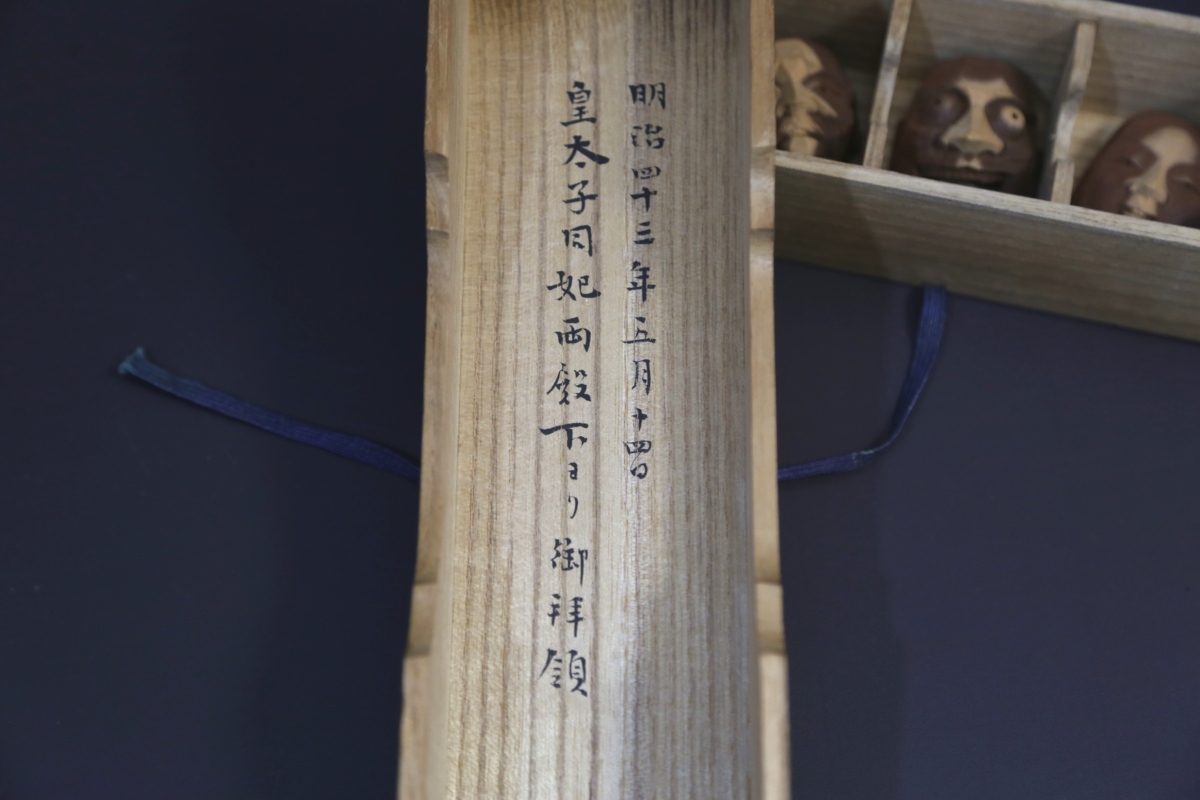 明治四十三年五月十四日
皇太子同妃両殿下ヨリ御拝領